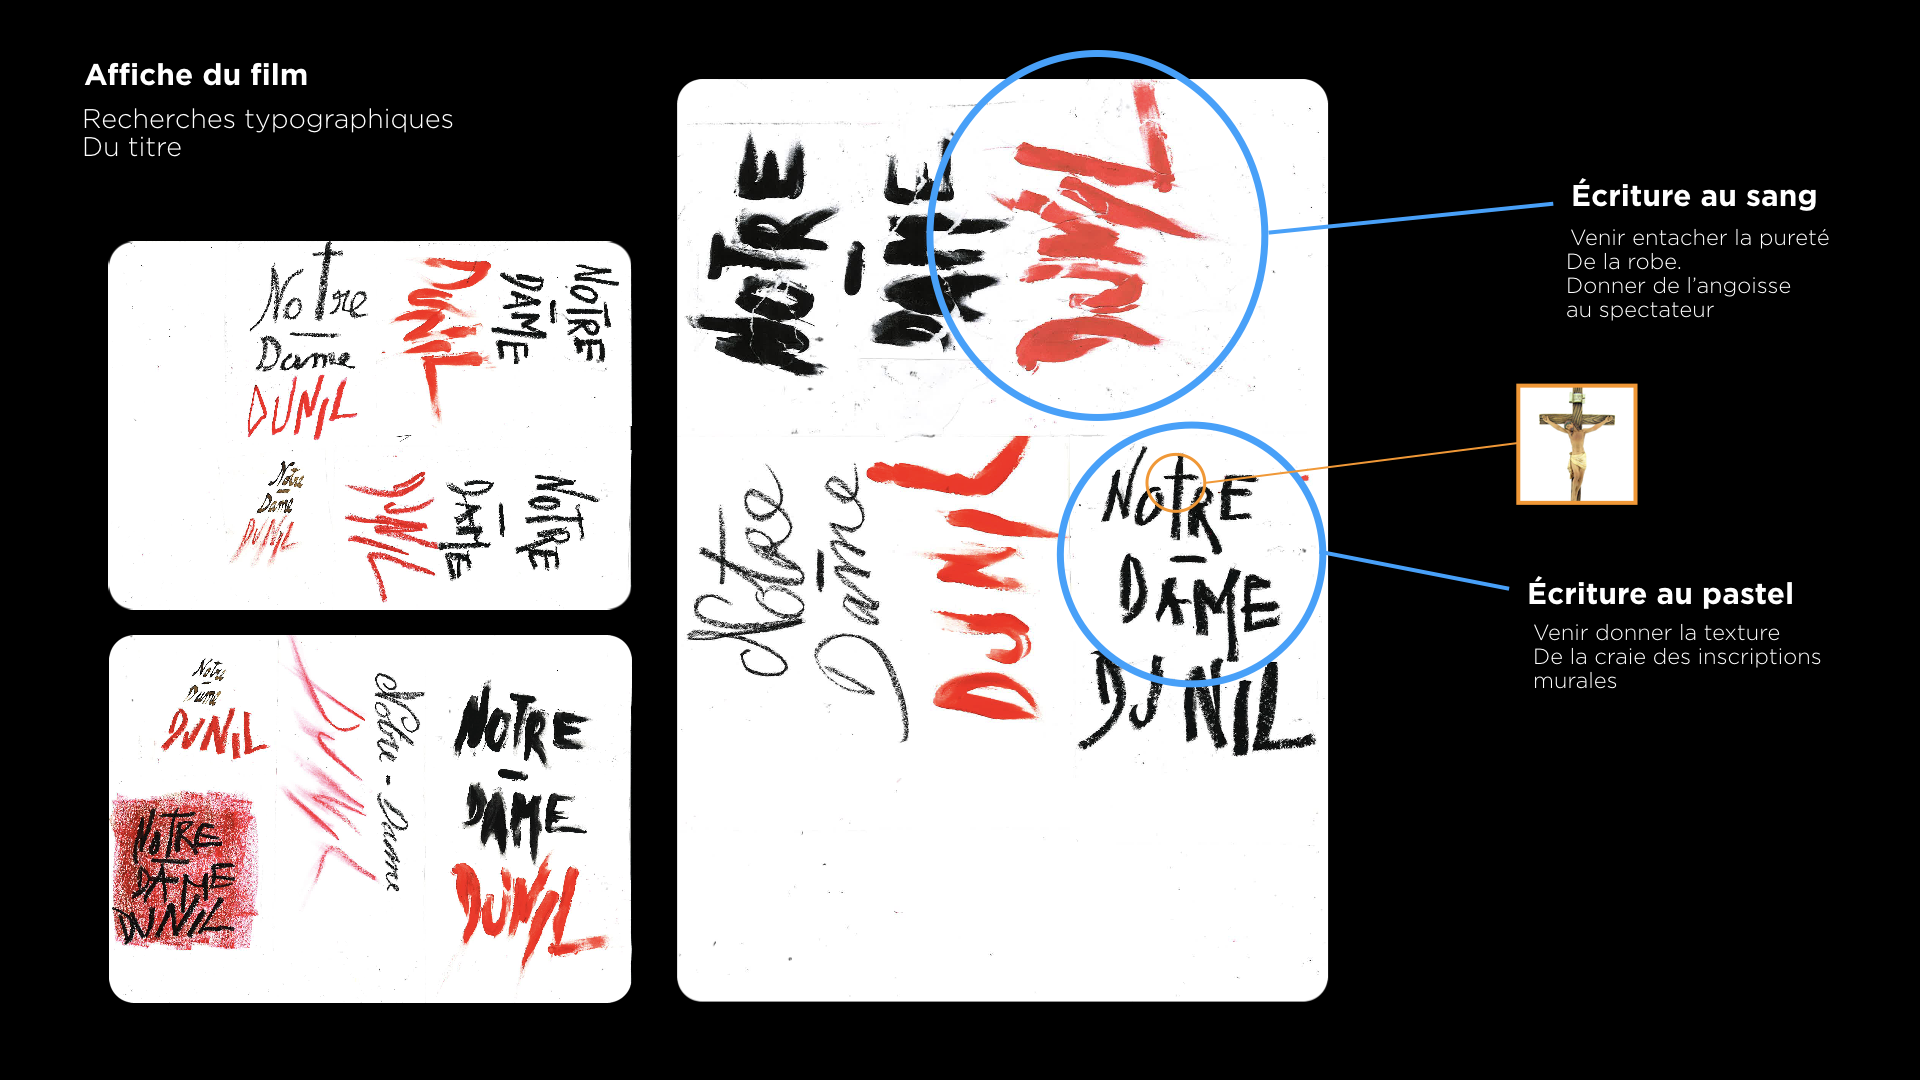 Affiche du film
Recherches typographiques
Du titre
Notre
–
Dame
DUNIL
DUNIL
DAME
–
NOTRE
Notre
–
Dame
DUNIL
DUNIL
DAME
–
NOTRE
Notre
Dame
DUNIL
DUNIL
Notre - Dame
NOTRE
–
DAME
DUNIL
NOTRE
–
DAME
DUNIL
NOTRE
–
DAME
DUNIL
Notre
–
Dame
DUNIL
NOTRE
–
DAME
DUNIL
Écriture au sang
Venir entacher la pureté
De la robe.
Donner de l’angoisse
au spectateur
Écriture au pastel
Venir donner la texture
De la craie des inscriptions
murales